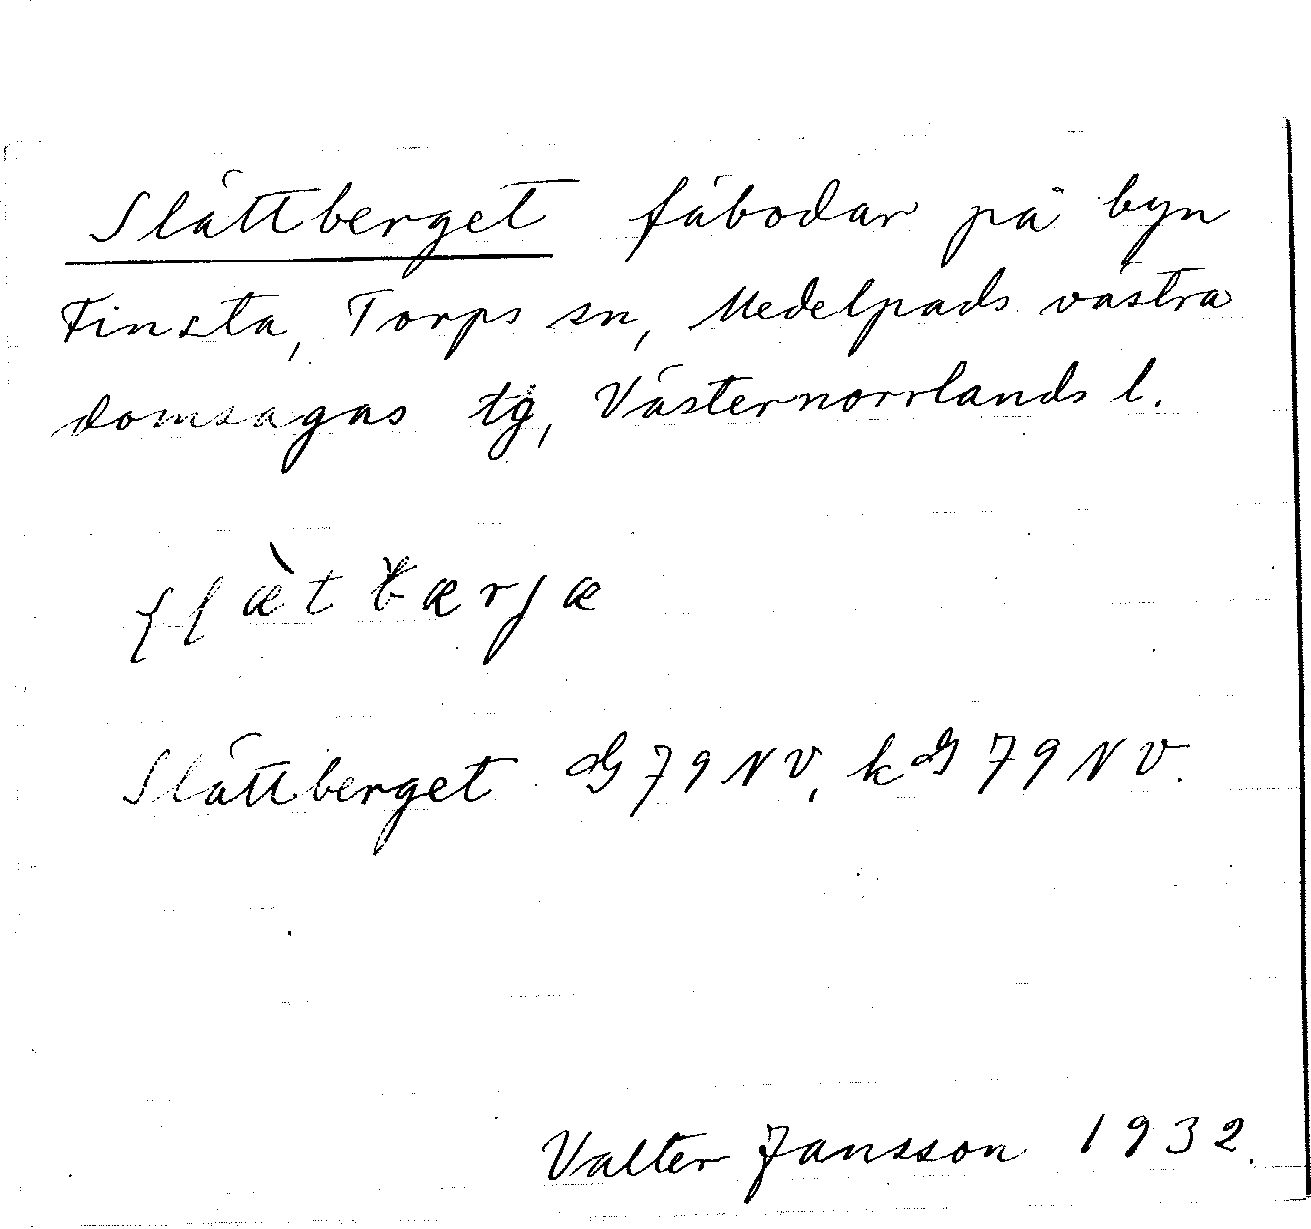 Slättberget fäbodar på byn
Finsta, Torps sn, Medelpads västra
domsagas tg, Västernorrlands l.
Slättberget G 79 NV, kG 79 NV.
Valter Jansson 1932.